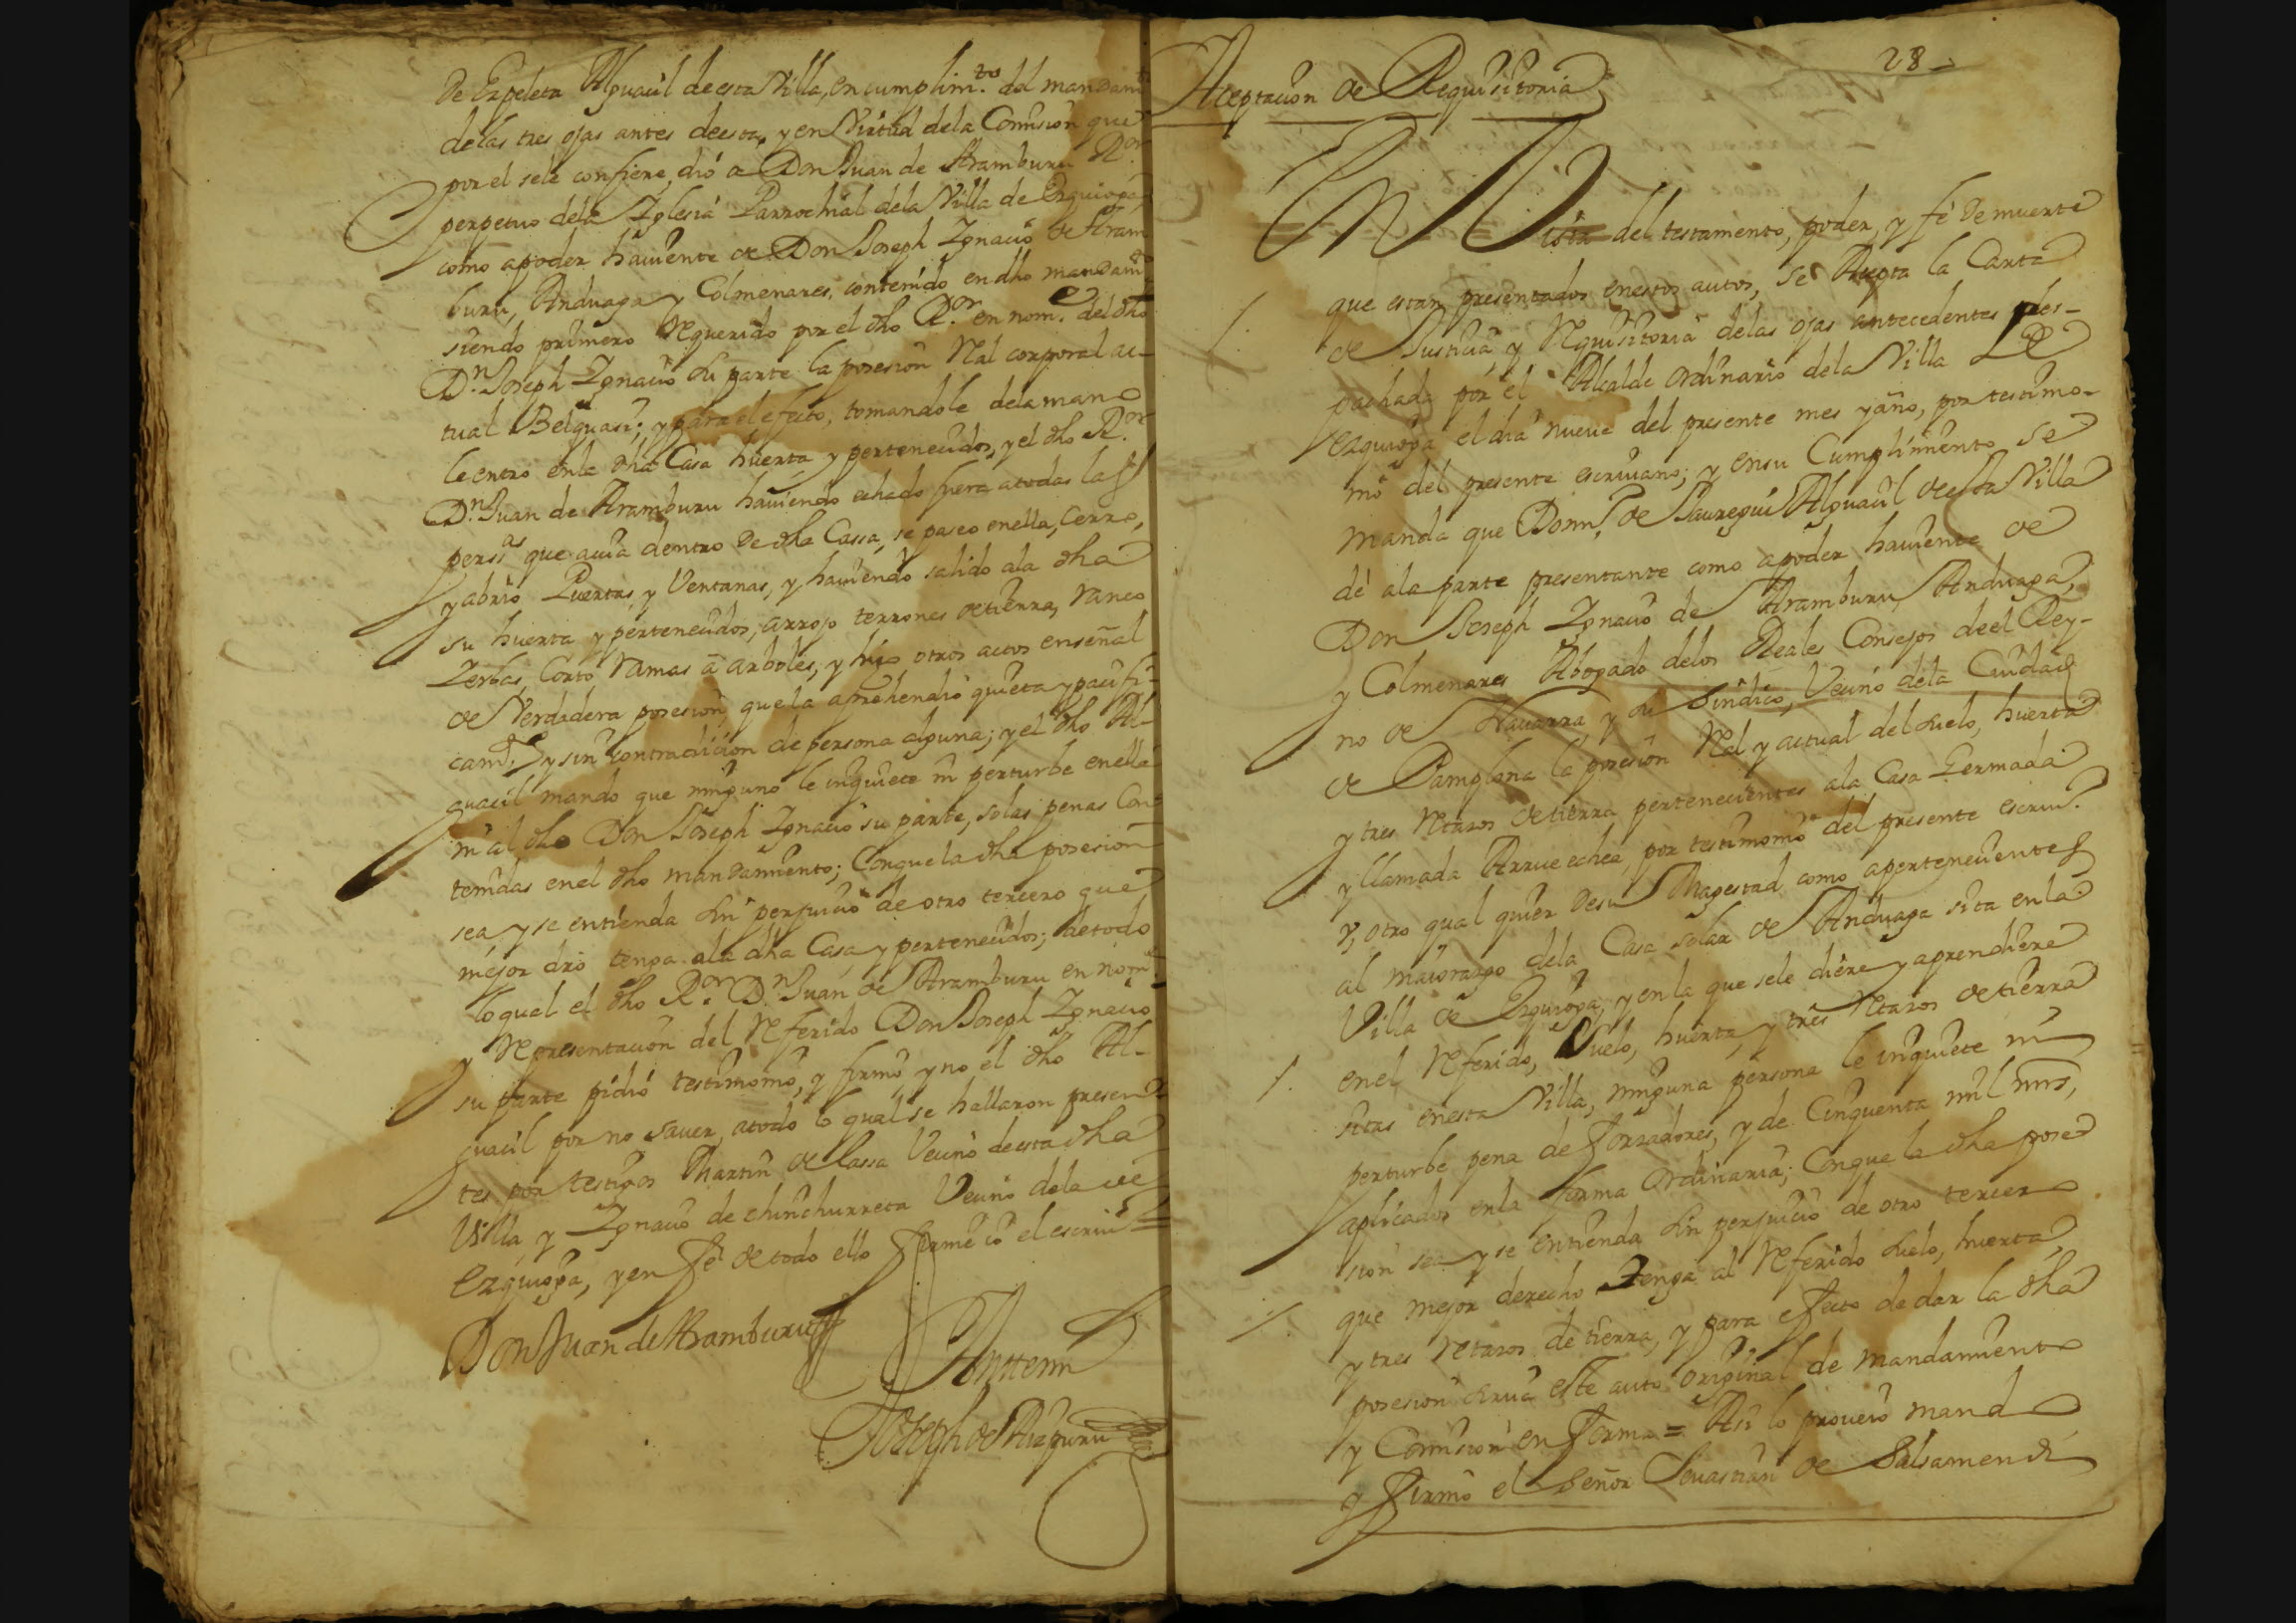 de Ezpeleta Alguacil de esta Villa, en cumplim.to del mandam.to
de las tres ojas antes de esta, y en Virtud de la Comision que
por el sele confiere, dió a Don Juan de Aramburu R.or
perpetuo dela Iglesia Parrochial dela Villa de Ezquioga
como apoder haviente de Don Joseph Ignacio de Aram
buru, Anduaga y Colmenares, contenido en dho mandam.to
siendo primero Requerido por el dho R.or en nom.e del dho
D.n Joseph Ignacio su parte la posesion Real corporal ac-
tual Belquasi; y para el efecto, tomandole dela mano
le entro en la dha Casa huerta y pertenecidos, y el dho R.or
D.n Juan de Aramburu haviendo echado fuera atodas las
pers.as que avia dentro de dha Cassa, se paseo en ella, cerro,
y abrio Puertas y Ventanas, y haviendo salido ala dha
su huerta y pertenecidos, arrojo terrones de tierra, ranco
Zerbas, Corto ramas a arboles, y hizo otros actos en señal
de Verdadera posesion, que la aprehendio quieta y pacifi-
cam.te y sin contradicion de persona alguna; y el dho Al-
guacil mando que ninguno le inquiete ni perturbe en ella
ni al dho Don Joseph Ignacio su parte, solas penas Con-
tenidas en el dho mandamiento; Con que la dha posesion
sea y se entienda sin perjuicio de otro tercero que
mejor dro tenga ala dha Casa y pertenecidos; de todo
lo qual el dho R.or D.n Juan de Aramburu en nom.e
y Representacion del Referido Don Joseph Ignacio
su parte pidió testimonio, y firmó, y no el dho Al-
guacil por no saver, atodo lo qual se hallaron presen-
tes por testigos Martin de Lassa Vecino de esta dha
Villa, y Ignacio de chinchurreta Vecino dela de
Ezquioga, y en fe de todo ello firme io el escriu.o =
Don Juan de Aramburu
Antemi
Joseph de Aizpuru
28
Aceptacion de Requisitoria
En Vista del testamento, poder, y fé de muerte
que estan presentados en estos autos, se Acepta la Carta
de Justicia y Requisitoria delas ojas antecedentes des-
pachada por el Alcalde Ordinario dela Villa de
ezquioga el dia nueve del presente mes y año, por testimo-
nio del presente escriuano; y en su Cumplimiento se
manda que Dom.o de Jauregui Alguacil de esta Villa
dé ala parte presentante como apoder haviente de
Don Joseph Ignacio de Aramburu, Anduaga,
y Colmenares Abogado delos Reales Consejos de el Rey-
no de Navarra, y su Sindico, Vecino dela Ciudad
de Pamplona la posesion Real y actual del suelo, huerta
y tres Retazos de tierra pertenecientes ala Casa Lermada
y llamada Arrue echea, por testimonio del presente escriu.o
v, otro qual quier de su Magestad como apertenecientes
al maiorazgo dela Casa solar de Anduaga sita en la
Villa de Ezquioga, y en la que sele diere y aprendiere
en el Referido, Suelo, huerta, y tres Retazos de tierra
sitas en esta Villa, ninguna persona le inquiete ni
perturbe pena de forzadores, y de Cinquenta mil mrs,
aplicados en la forma Ordinaria; Con que la dha pose-
sion sea y se entienda sin perjuicio de otro tercero
que mejor derecho tenga al Referido suelo, huerta
y tres retazos de tierra, y para efecto de dar la dha
posesion sirua este auto original de mandamiento
y Comision en forma = Asi lo proueio mandó
y firmó el Señor Sevastian de Salsamendi